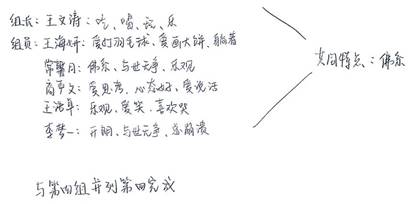 组长：王文涛：吃、喝、玩、乐
组员：王海妍：爱打羽毛球、爱画大饼、躺着
常馨月：佛系、与世无争、乐观
高宇文：爱思考、心态好、爱说话
王浩阜：乐观、爱笑、喜欢哭
李梦一：开朗、与世无争、总崩溃
共同特点：佛系
与第四组并列第四完成